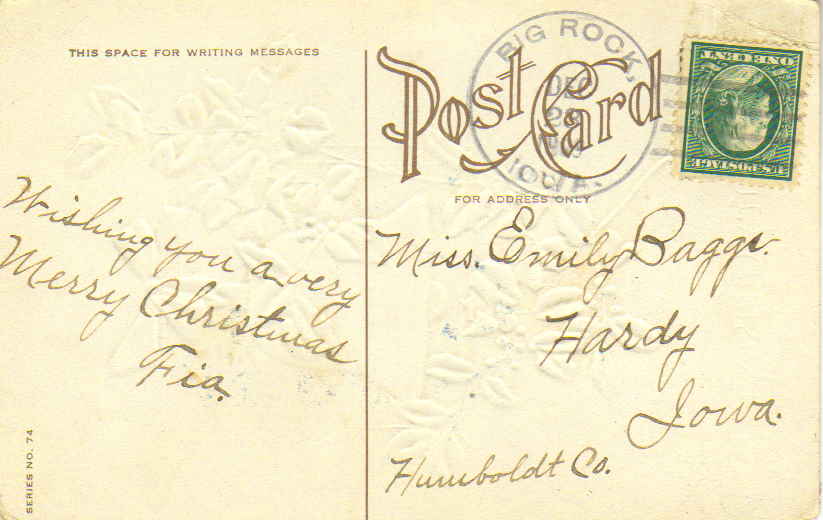 THIS SPACE FOR WRITING MESSAGES
Wishing you a very
Merry Christmas
Fia.
SERIES NO. 74
Post Card
FOR ADDRESS ONLY
BIG ROCK,
DEC
IOWA.
U.S. POSTAGE
ONE CENT
Miss. Emily Baggs.
Hardy
Iowa.
Humboldt Co.